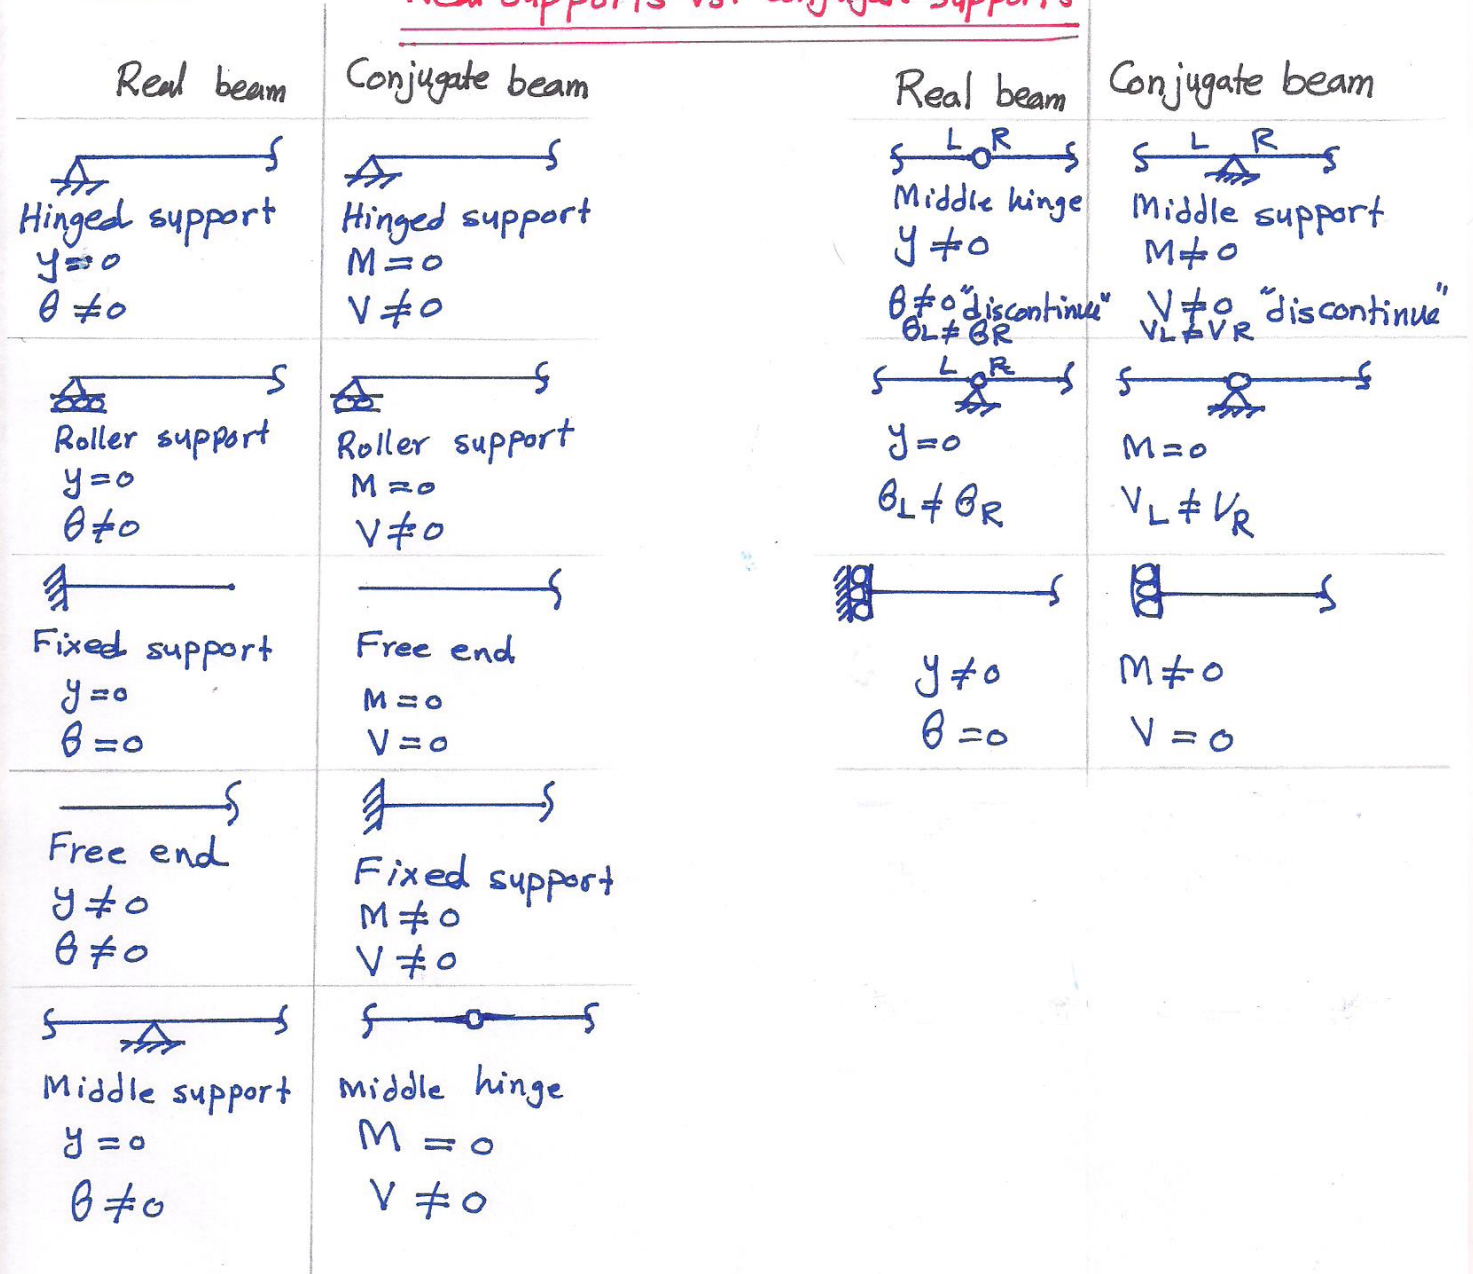 Real supports vs. conjugate supports
Real beam
Conjugate beam
Hinged support
y=0
θ≠0
Hinged support
M=0
V≠0
Roller support
y=0
θ≠0
Roller support
M=0
V≠0
Fixed support
y=0
θ=0
Free end
M=0
V=0
Free end
y≠0
θ≠0
Fixed support
M≠0
V≠0
Middle support
y=0
θ≠0
Middle hinge
M=0
V≠0
Real beam
Conjugate beam
L R
Middle hinge
y≠0
θ≠0 "discontinue"
θL≠θR
L R
Middle support
M≠0
V≠0 "discontinue"
VL≠VR
L R
y=0
θL≠θR
M=0
VL≠VR
y≠0
θ=0
M≠0
V=0